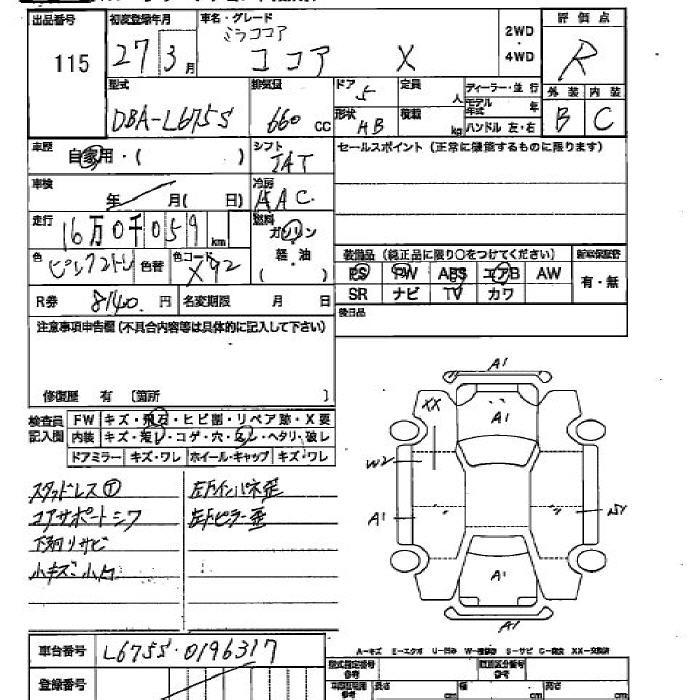 出品番号 初度登録年月 車名・グレード 2WD・4WD 評価点
115 27 3月 ミラココア ココア X R
型式 排気量 ドア 定員 ディーラー・並行 外装 内装
DBA-L675S 660cc 5 人 モデル年式 年 B C
形状 HB 積載 kg ハンドル 左・右
車歴 自家用・( ) シフト IAT セールスポイント(正常に機能するものに限ります)
車検 年 月( 日) 冷房 AAC
走行 16万0千059km 燃料 ガソリン・軽油 ( )
色 ピンク2トン 色替 色コード X92
装備品(純正品に限り○をつけてください)
PS PW ABS エアB AW 有・無
SR ナビ TV カワ
R券 8140円 名変期限 月 日
後日品
注意事項申告欄(不具合内容等は具体的に記入して下さい)
修復歴 有〔箇所 〕
検査員記入欄 FW キズ・飛石・ヒビ割・リペア跡・X要
内装 キズ・汚レ・コゲ・穴・ ・ヘタリ・破レ
ドアミラー キズ・ワレ ホイール・キャップ キズ・ワレ
スタッドレス
コアサポートシワ
下廻リサビ
小キズ小凹
左Fインパネ歪
左Fピラー歪
A1
XX
A1
W2
A1
A1
A1
A-キズ E-エクボ U-凹み W-補修跡 S-サビ C-腐食 XX-交換済
車台番号 L675S-0196317
登録番号
型式指定番号 参考 類別区分番号 参考
長さ cm 幅 cm 高さ cm